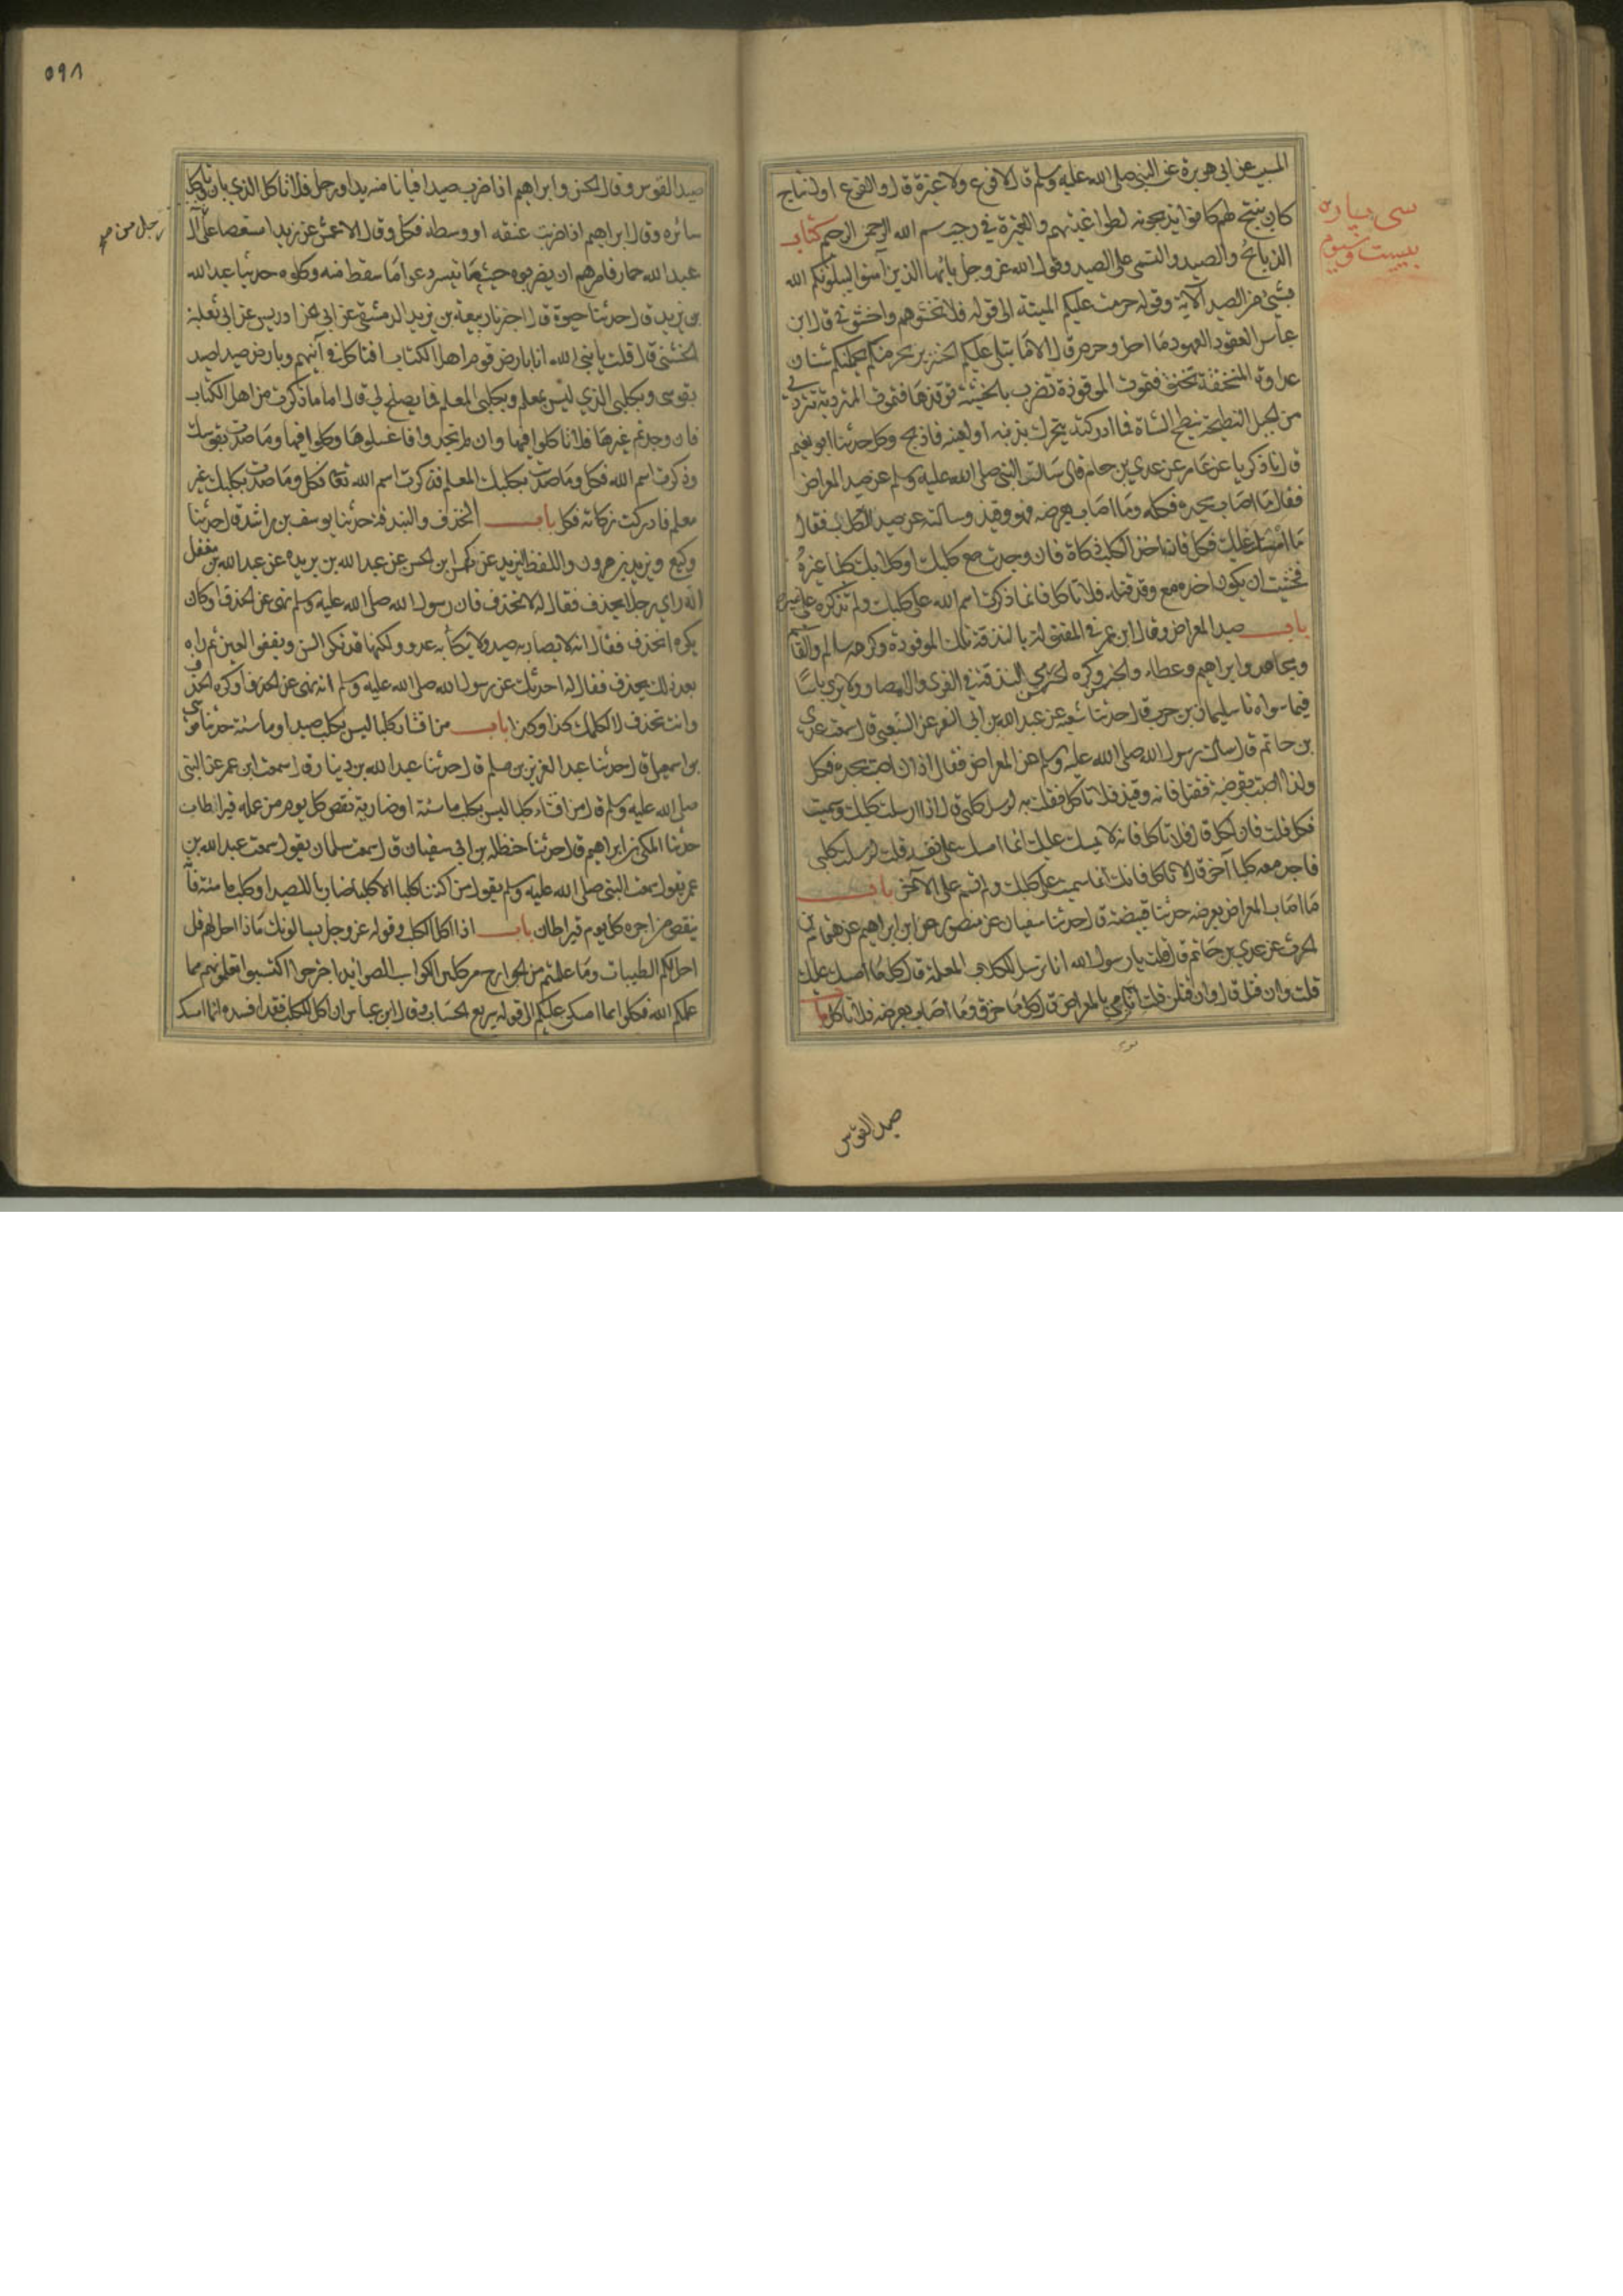 المسيب عن ابي هريرة عن النبي صلى الله عليه وسلم قال لا فرع ولا عتيرة قال والفرع اول نتاج
كان ينتج لهم كانوا يذبحونه لطواغيتهم والعتيرة في رجب بسم الله الرحمن الرحيم كتاب
الذبائح والصيد والتسمى على الصيد وقول الله عز وجل يا ايها الذين آمنوا ليبلونكم الله
بشيئ من الصيد الآية وقوله حرمت عليكم الميتة الى قوله فلا تخشوهم واخشوني قال ابن
عباس العقود العهود ما احل وحرم قال الا ما يتلى عليكم الخنزير يجرمنكم يحملنكم شنان
عداوة المنخنقة تخنق فتموت الموقوذة تضرب بالخشبة توقذها فتموت المتردية تتردى
من الجبل النطيحة تنطح الشاة فما ادركته يتحرك بذنبه او بعينه فاذبح وكل حدثنا ابو نعيم
قال نا ذكريا عن عامر عن عدي بن حاتم قال سالت النبي صلى الله عليه وسلم عن صيد المعراض
فقال ما اصاب بحده فكله وما اصاب بعرضه فهو وقيذ وسالته عن صيد الكلب فقال
ما امسك عليك فكل فان اخذ الكلب ذكاة فان وجدت مع كلبك او كلابك كلبا غيره
فخشيت ان يكون اخذه معه وقد قتله فلا تاكل فانما ذكرت اسم الله على كلبك ولم تذكره على غيره
باب صيد المعراض وقال ابن عمر في المقتولة بالبندقة تلك الموقوذة وكرهه سالم والقاسم
ومجاهد وابراهيم وعطاء والحسن وكره الحسن رمي البندقة في القرى والامصار ولا يرى باسا
فيما سواه نا سليمان بن حرب قال حدثنا شعبة عن عبد الله بن ابي السفر عن الشعبي قال سمعت عدي
بن حاتم قال سالت رسول الله صلى الله عليه وسلم عن المعراض فقال اذا اصبت بحده فكل
واذا اصبت بعرضه فقتل فانه وقيذ فلا تاكل فقلت ارسل كلبي قال اذا ارسلت كلبك وسميت
فكل قلت فان اكل قال فلا تاكل فانه لا يمسك عليك انما امسك على نفسه قلت ارسلت كلبي
فاجد معه كلبا آخر قال لا تاكل فانك انما سميت على كلبك ولم تسم على الآخر باب
ما اصاب المعراض بعرضه حدثنا قبيصة قال حدثنا سفيان عن منصور عن ابراهيم عن همام بن
الحرث عن عدي بن حاتم قال قلت يا رسول الله انا نرسل الكلاب المعلمة قال كل ما امسك عليك
قلت وان قتل قال وان قتلن قلت انا نرمي بالمعراض قال كل ما خزق وما اصاب بعرضه فلا تاكل باب
سى پاره
بيست وسيوم
صيد القوس
٥٩٨
صيد القوس وقال الحسن وابراهيم اذا ضرب صيدا فبانا منه يدا ورجل فلا تاكل الذي بان وكل
سائره وقال ابراهيم اذا ضربت عنقه او وسطه فكل وقال الاعمش عن زيد استعصا على آل
عبد الله حمار فامرهم ان يضربوه حيث ما تيسر دعوا ما سقط منه وكلوه حدثنا عبد الله
بن يزيد قال حدثنا حيوة قال اخبرنا ربيعة بن يزيد الدمشقي عن ابي ادريس عن ابي ثعلبة
الخشني قال قلت يا نبي الله انا بارض قوم اهل الكتاب افناكل في آنيتهم وبارض صيد اصيد
بقوسي وبكلبي الذي ليس بمعلم وبكلبي المعلم فما يصلح لي قال اما ما ذكرت من اهل الكتاب
فان وجدتم غيرها فلا تاكلوا فيها وان لم تجدوا فاغسلوها وكلوا فيها وما صدت بقوسك
وذكرت اسم الله فكل وما صدت بكلبك المعلم فذكرت اسم الله فكل وما صدت بكلبك غير
معلم فادركت زكاته فكل باب الخذف والبندقة حدثنا يوسف بن راشد قال حدثنا
وكيع ويزيد بن هرون واللفظ ليزيد عن كهمس بن الحسن عن عبد الله بن بريده عن عبد الله بن مغفل
انه راى رجلا يخذف فقال له لا تخذف فان رسول الله صلى الله عليه وسلم نهى عن الخذف او كان
يكره الخذف فقال انه لا يصاد به صيد ولا ينكأ به عدو ولكنها قد تكسر السن وتفقؤ العين ثم راه
بعد ذلك يخذف فقال له احدثك عن رسول الله صلى الله عليه وسلم انه نهى عن الخذف او كره الخذف
وانت تخذف لا اكلمك كذا وكذا باب من اقتنا كلبا ليس بكلب صيد او ماشية حدثنا موسى
بن اسمعيل قال حدثنا عبد العزيز بن مسلم قال حدثنا عبد الله بن دينار قال سمعت ابن عمر عن النبي
صلى الله عليه وسلم قال من اقتناء كلبا ليس بكلب ماشية او ضارية نقص كل يوم من عمله قيراطان
حدثنا المكي بن ابراهيم قال حدثنا حنظله بن ابي سفيان قال سمعت سالما يقول سمعت عبد الله بن
عمر يقول سمعت النبي صلى الله عليه وسلم يقول من اقتنا كلبا الا كلبا ضاريا للصيد او كلب ماشية فانه
ينقص من اجره كل يوم قيراطان باب اذا اكل الكلب وقوله عز وجل يسالونك ماذا احل لهم قل
احل لكم الطيبات وما علمتم من الجوارح مكلبين الكواسب الصوائد اجترحوا اكتسبوا تعلمونهن مما
علمكم الله فكلوا مما امسكن عليكم الى قوله سريع الحساب وقال ابن عباس ان اكل الكلب فقد افسده انما امسك
رجل من صح